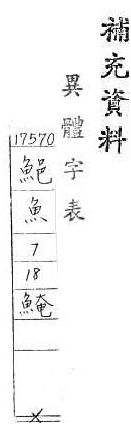 補充資料
異體字表
17570
䱒
魚
7
18